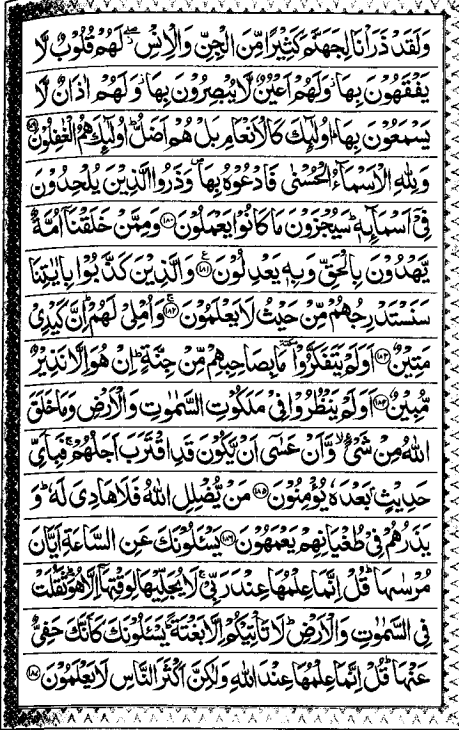 وَلَقَدْ ذَرَاْنَا لِجَهَنَّمَ كَثِيْرًا مِّنَ الْجِنِّ وَالْاِنْسِ ۖ لَهُمْ قُلُوْبٌ لَّا
يَفْقَهُوْنَ بِهَا ؗ وَلَهُمْ اَعْيُنٌ لَّا يُبْصِرُوْنَ بِهَا ؗ وَلَهُمْ اٰذَانٌ لَّا
يَسْمَعُوْنَ بِهَا ؕ اُولٰٓئِكَ كَالْاَنْعَامِ بَلْ هُمْ اَضَلُّ ؕ اُولٰٓئِكَ هُمُ الْغٰفِلُوْنَ ﴿۱۷۹﴾
وَ لِلّٰهِ الْاَسْمَآءُ الْحُسْنٰى فَادْعُوْهُ بِهَا ۪ وَذَرُوا الَّذِيْنَ يُلْحِدُوْنَ
فِيْۤ اَسْمَآئِهٖ ؕ سَيُجْزَوْنَ مَا كَانُوْا يَعْمَلُوْنَ ﴿۱۸۰﴾ وَمِمَّنْ خَلَقْنَاۤ اُمَّةٌ
يَّهْدُوْنَ بِالْحَقِّ وَبِهٖ يَعْدِلُوْنَ ﴿۱۸۱﴾ وَالَّذِيْنَ كَذَّبُوْا بِاٰيٰتِنَا
سَنَسْتَدْرِجُهُمْ مِّنْ حَيْثُ لَا يَعْلَمُوْنَ ﴿۱۸۲﴾ وَاُمْلِيْ لَهُمْ ؕ اِنَّ كَيْدِيْ
مَتِيْنٌ ﴿۱۸۳﴾ اَوَلَمْ يَتَفَكَّرُوْا ٚ مَا بِصَاحِبِهِمْ مِّنْ جِنَّةٍ ؕ اِنْ هُوَ اِلَّا نَذِيْرٌ
مُّبِيْنٌ ﴿۱۸۴﴾ اَوَلَمْ يَنْظُرُوْا فِيْ مَلَكُوْتِ السَّمٰوٰتِ وَالْاَرْضِ وَمَا خَلَقَ
اللّٰهُ مِنْ شَيْءٍ ۙ وَّاَنْ عَسٰۤى اَنْ يَّكُوْنَ قَدِ اقْتَرَبَ اَجَلُهُمْ ۚ فَبِاَيِّ
حَدِيْثٍۭ بَعْدَهٗ يُؤْمِنُوْنَ ﴿۱۸۵﴾ مَنْ يُّضْلِلِ اللّٰهُ فَلَا هَادِيَ لَهٗ ؕ وَ
يَذَرُهُمْ فِيْ طُغْيَانِهِمْ يَعْمَهُوْنَ ﴿۱۸۶﴾ يَسْـَٔلُوْنَكَ عَنِ السَّاعَةِ اَيَّانَ
مُرْسٰىهَا ؕ قُلْ اِنَّمَا عِلْمُهَا عِنْدَ رَبِّيْ ۚ لَا يُجَلِّيْهَا لِوَقْتِهَاۤ اِلَّا هُوَ ؔؕ ثَقُلَتْ
فِي السَّمٰوٰتِ وَالْاَرْضِ ؕ لَا تَاْتِيْكُمْ اِلَّا بَغْتَةً ؕ يَسْـَٔلُوْنَكَ كَاَنَّكَ حَفِيٌّ
عَنْهَا ؕ قُلْ اِنَّمَا عِلْمُهَا عِنْدَ اللّٰهِ وَلٰكِنَّ اَكْثَرَ النَّاسِ لَا يَعْلَمُوْنَ ﴿۱۸۷﴾